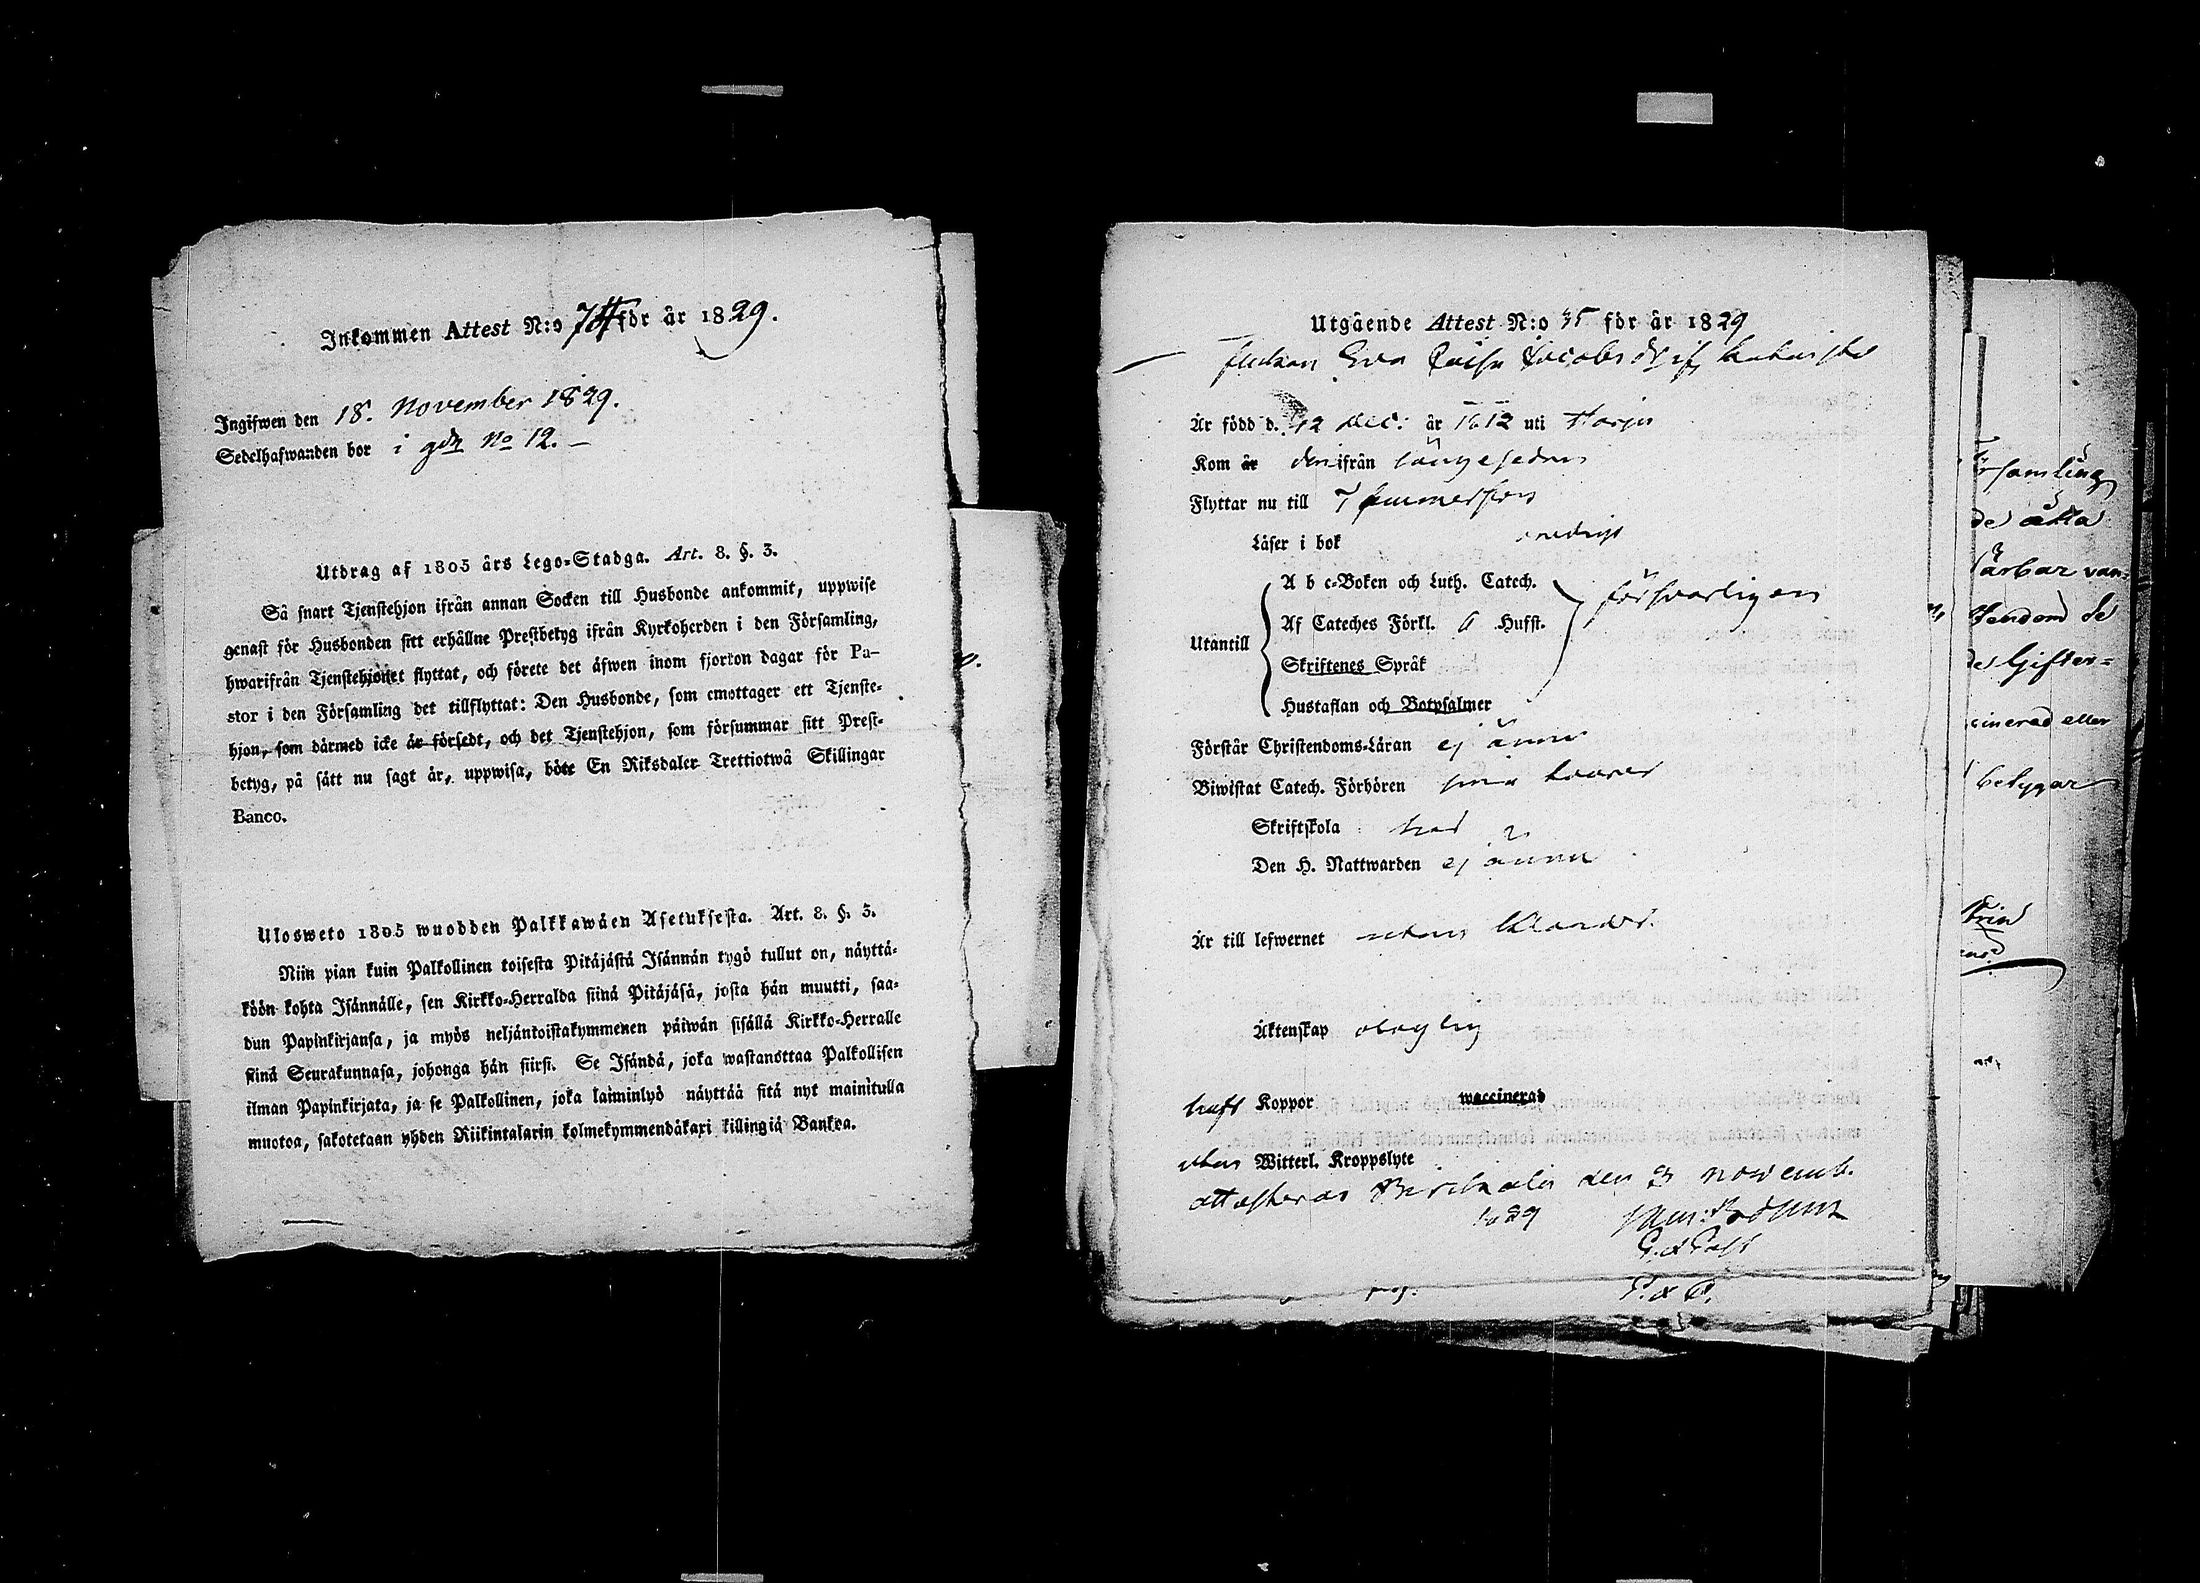 Inkommen Attest N:o 74 för år 1829.
Ingifwen den 18. November 1829.
Sedelhafwanden bor i gdn No 12. –
Utdrag af 1805 års Lego-Stadga. Art. 8. §. 3.
Så snart Tjenstehjon ifrån annan Socken till Husbonde ankommit, uppwise
genast för Husbonden sitt erhållne Prestbetyg ifrån Kyrkoherden i den Församling,
hwarifrån Tjenstehjonet flyttat, och förete det äfwen inom fjorton dagar för Pa-
stor i den Församling det tillflyttat: Den Husbonde, som emottager ett Tjenste-
hjon, som därmed icke är försedt, och det Tjenstehjon, som försummar sitt Prest-
betyg, på sätt nu sagt är, uppwisa, böte En Riksdaler Trettiotwå Skillingar
Banco.
Ulosweto 1805 wuodden Palkkawäen Asetuksesta. Art. 8. §. 3.
Niin pian kuin Palkollinen toisesta Pitäjästä Isännän tygö tullut on, näyttä-
köön kohta Isännälle, sen Kirkko-Herralda siinä Pitäjäsä, josta hän muutti, saa-
dun Papinkirjansa, ja myös neljäntoistakymmenen päiwän sisällä Kirkko-Herralle
siinä Seurakunnasa, johonga hän siirsi. Se Isändä, joka wastanottaa Palkollisen
ilman Papinkirjata, ja se Palkollinen, joka laiminlyö näyttää sitä nyt mainitulla
muotoa, sakotetaan yhden Riikintalarin kolmekymmendäkaxi killingiä Bankoa.
Utgående Attest N:o 35 för år 1829
Eva Jacobsdr
Är född d. 12 Dec. år 1812 uti
Kom år den ifrån
Flyttar nu till Tammerfors
Läser i bok
A b c-Boken och Luth. Catech.
Af Cateches Förkl. 6 Hufst. försvarligen
Utantill
Skriftenes Språk
Hustaflan och Botpsalmer
Förstår Christendoms-Läran ej ännu
Biwistat Catech. Förhören sina
Skriftskola
Den H. Nattwarden ej ännu
Är till lefwernet utan klander.
Äktenskap
haft Koppor waccinerad
utan Witterl. Kroppslyte
attesteras den 3 Novemb.
1829
församling
de åtta
ärbar van-
stendom de
des Gifter-
cinerad eller
betygar